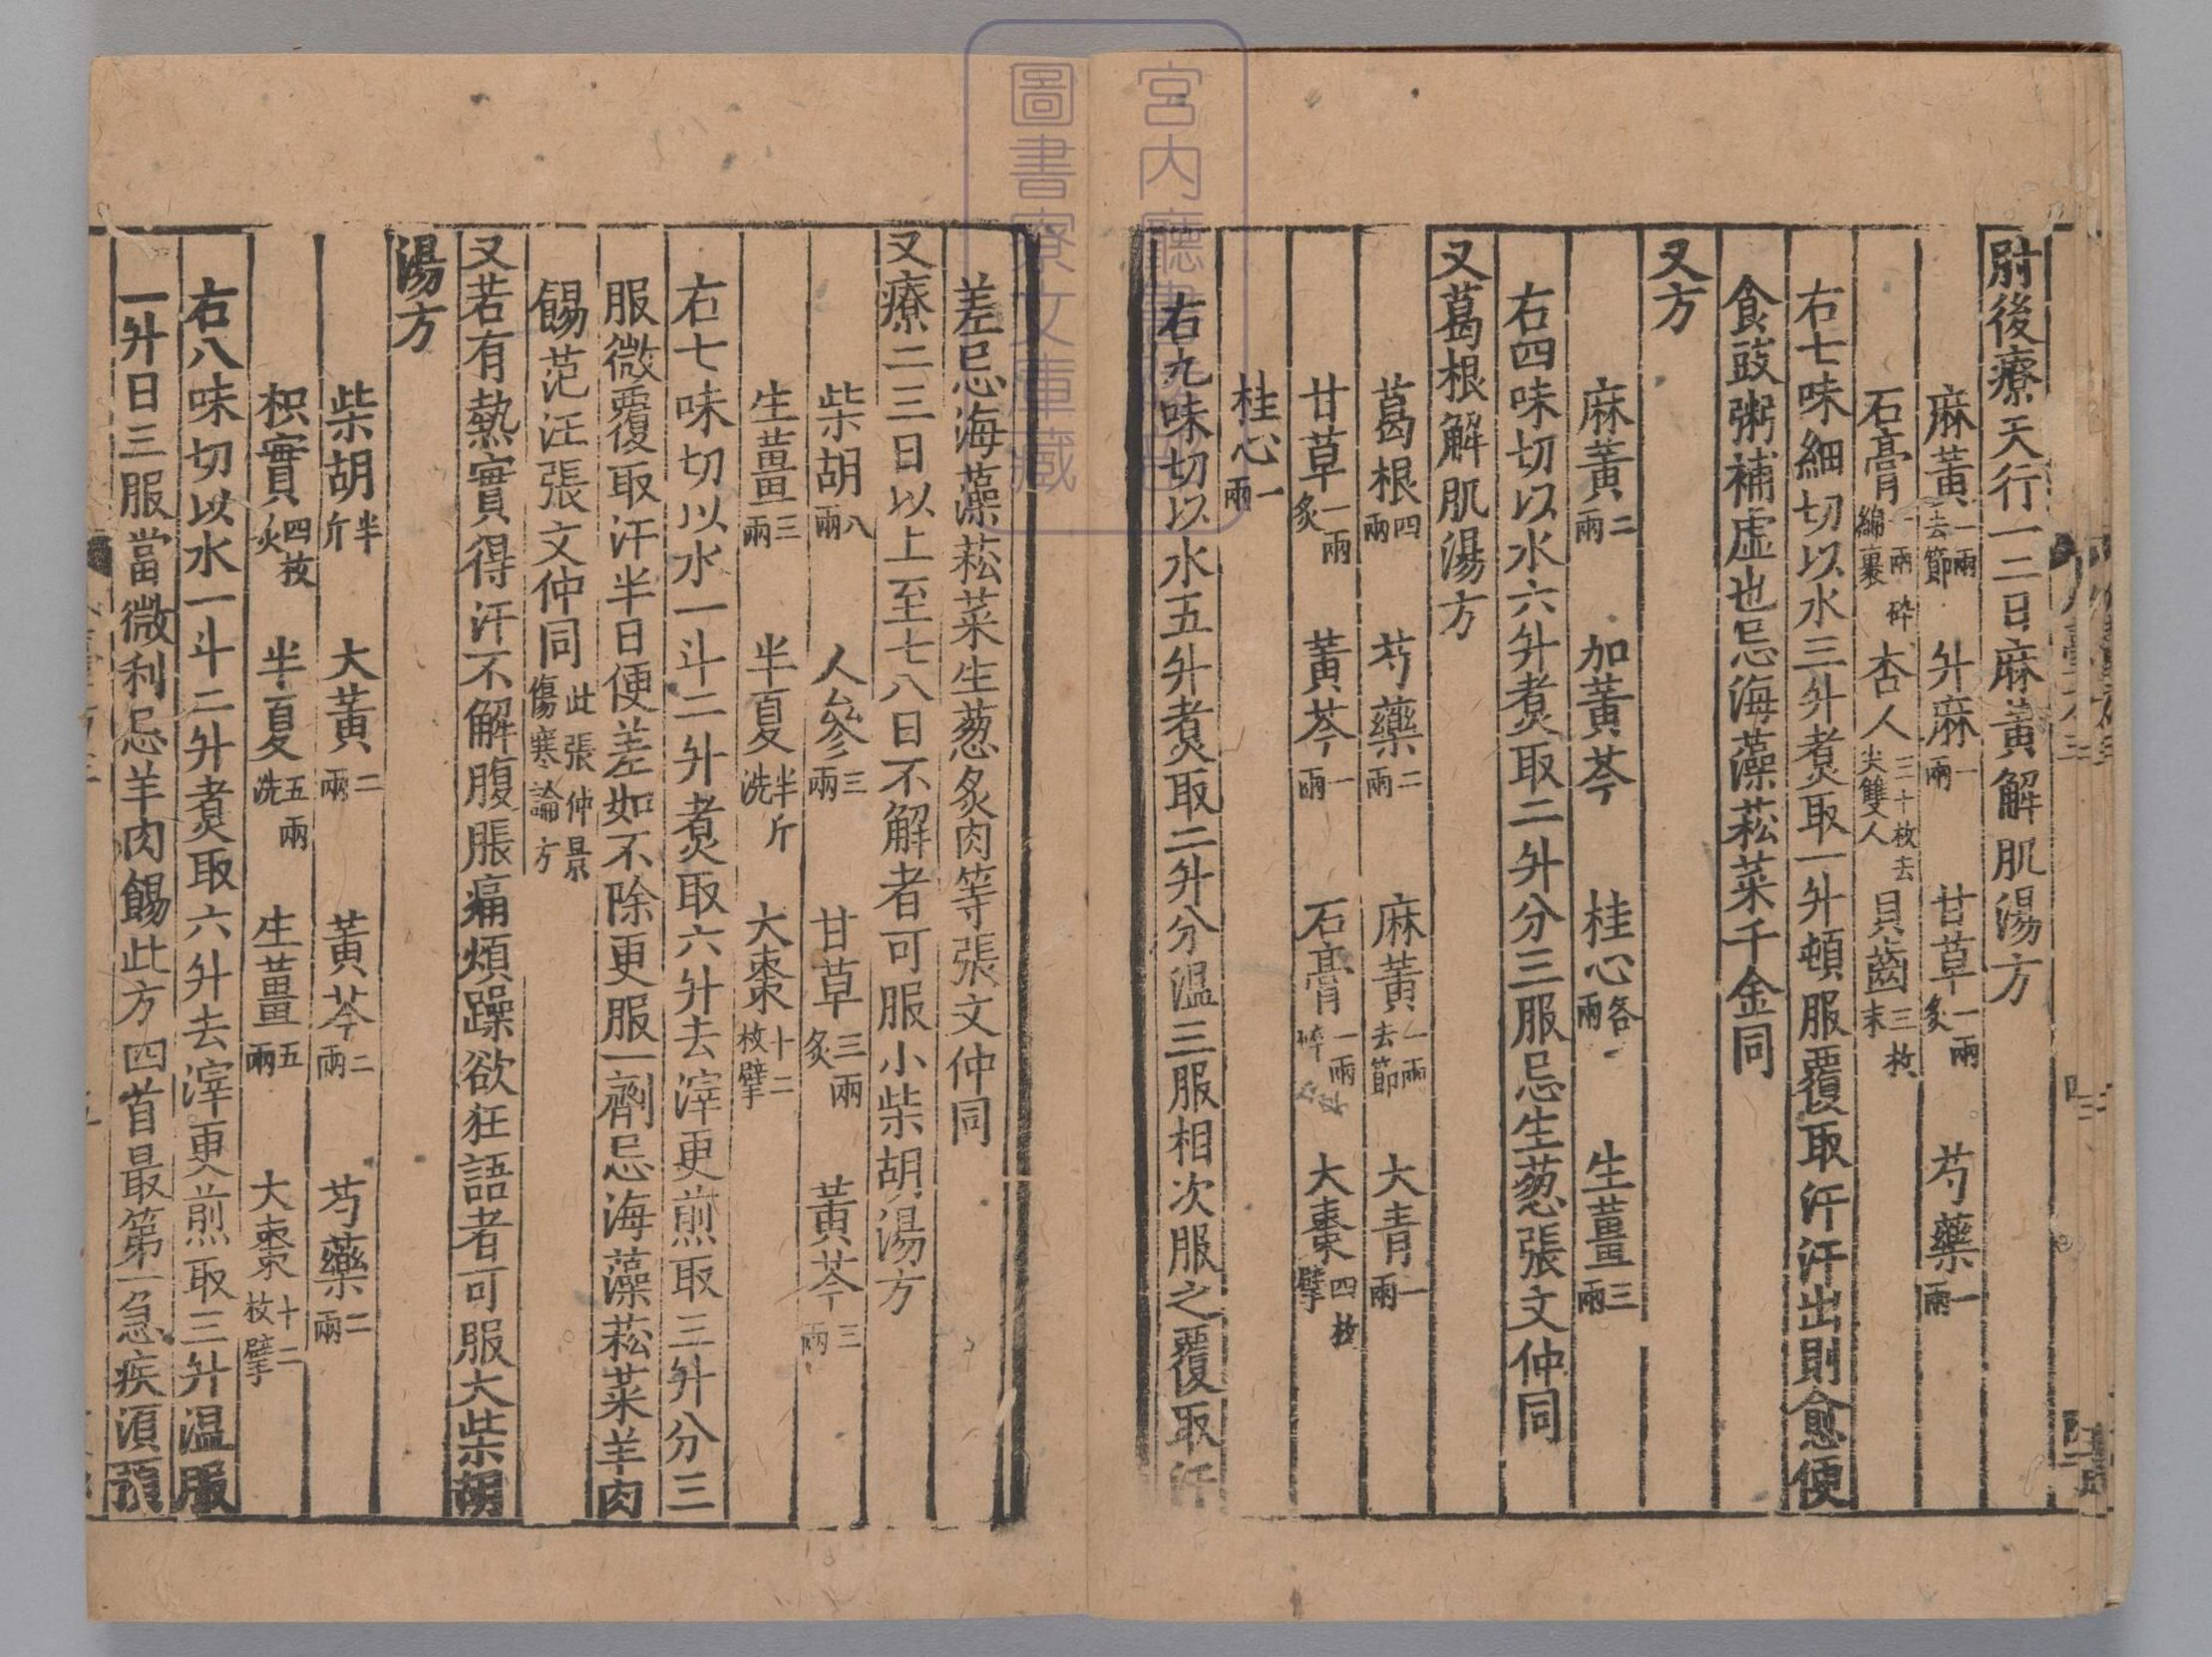 尉後療天行一二日麻黃解肌湯方
麻黃一兩去節 升麻一兩 甘草一兩炙 芍藥一兩
石膏一兩碎綿裹 杏人三十枚去尖雙人 貝齒三枚末
右七味細切以水三升煮取一升頓服覆取汗汗出則愈便
食豉粥補虛也忌海藻菘菜千金同
又方
麻黃二兩 加黃芩 桂心各兩 生薑三兩
右四味切以水六升煮取二升分三服忌生葱張文仲同
又葛根解肌湯方
葛根四兩 芍藥二兩 麻黃一兩去節 大青一兩
甘草一兩炙 黃芩一兩 石膏一兩碎 大棗四枚擘
桂心一兩
右九味切以水五升煮取二升分溫三服相次服之覆取汗
差忌海藻菘菜生葱炙肉等張文仲同
又療二三日以上至七八日不解者可服小柴胡湯方
柴胡八兩 人參三兩 甘草三兩炙 黃芩三兩
生薑三兩 半夏半斤洗 大棗十二枚擘
右七味切以水一斗二升煮取六升去滓更煎取三升分三
服微覆取汗半日便差如不除更服一劑忌海藻菘菜羊肉
餳范汪張文仲同此張仲景傷寒論方
又若有熱實得汗不解腹脹痛煩躁欲狂語者可服大柴胡
湯方
柴胡半斤 大黃二兩 黃芩二兩 芍藥二兩
枳實四枚火 半夏五兩洗 生薑五兩 大棗十二枚擘
右八味切以水一斗二升煮取六升去滓更煎取三升溫服
一升日三服當微利忌羊肉餳此方四首最第一急疾須預
宮內廳
圖書寮文庫藏